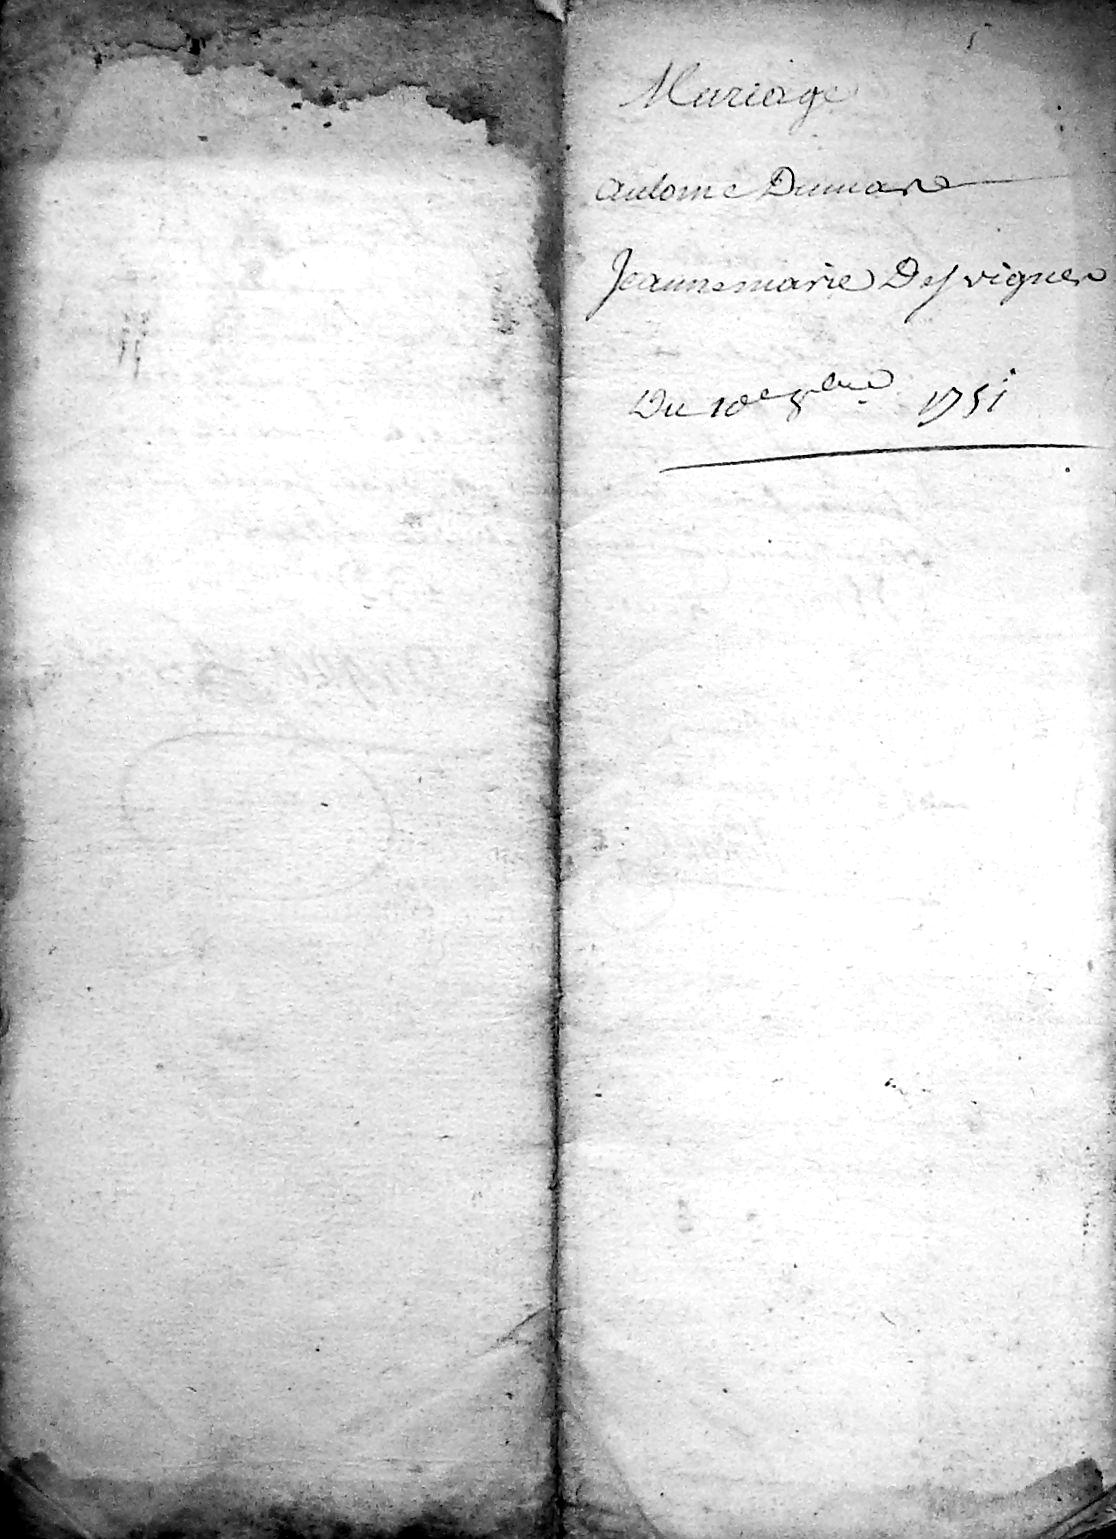 Mariage
antoine Dumare
Jeanne marie Desvignes
Du 10e 8bre 1751